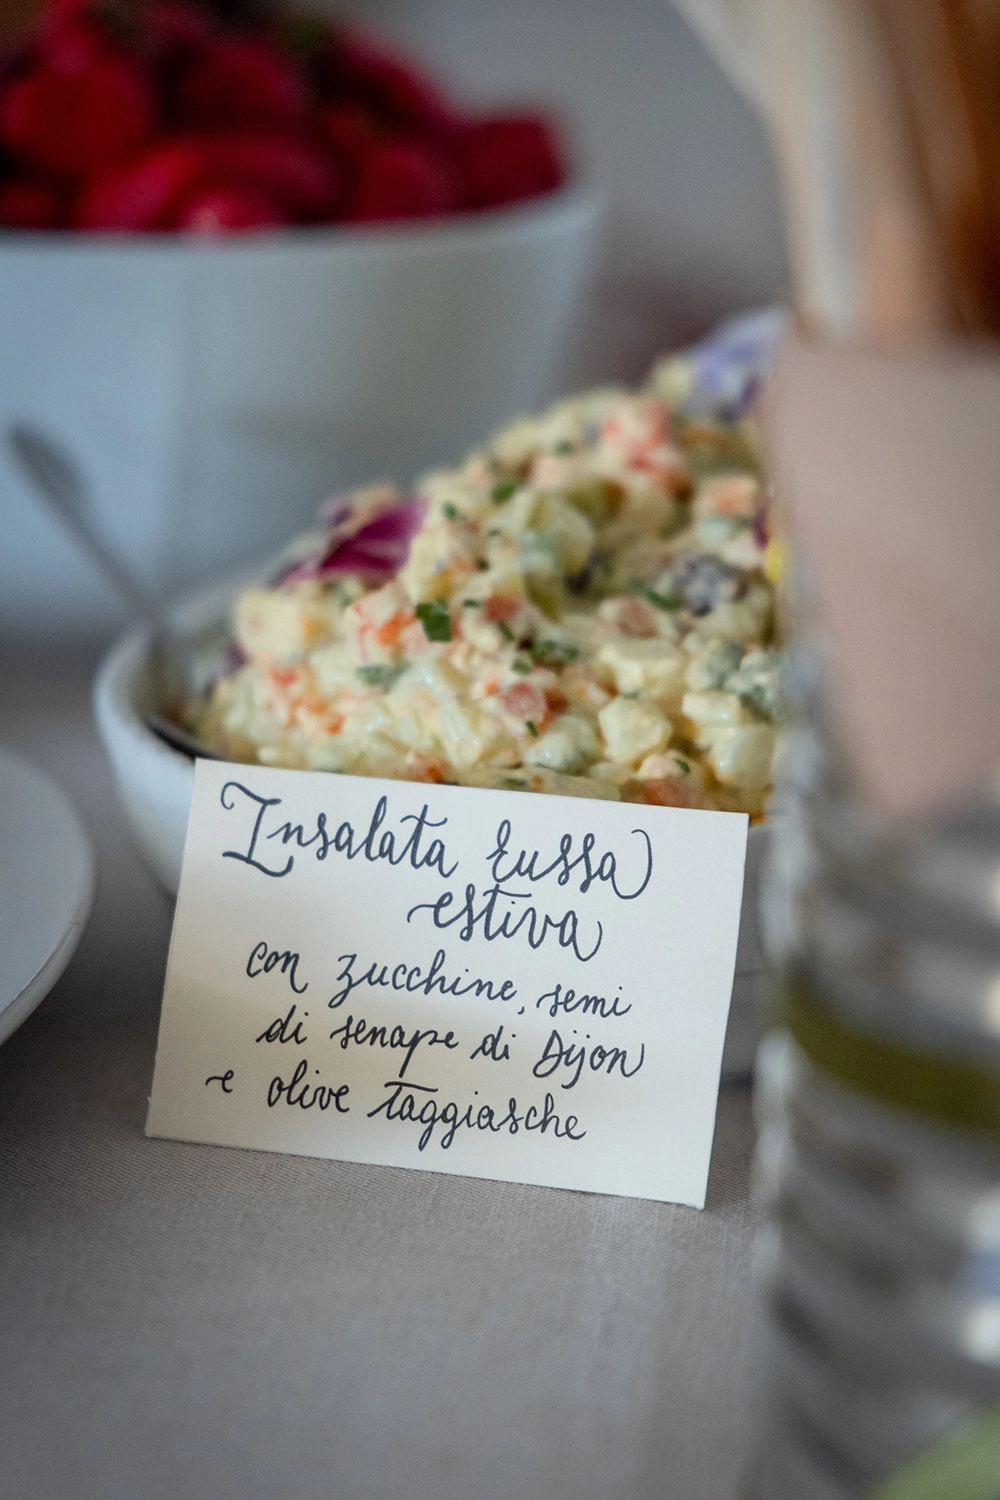 Insalata russa
estiva
con zucchine, semi
di senape di Dijon
e olive taggiasche